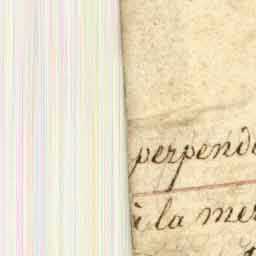 perpend
à la mer